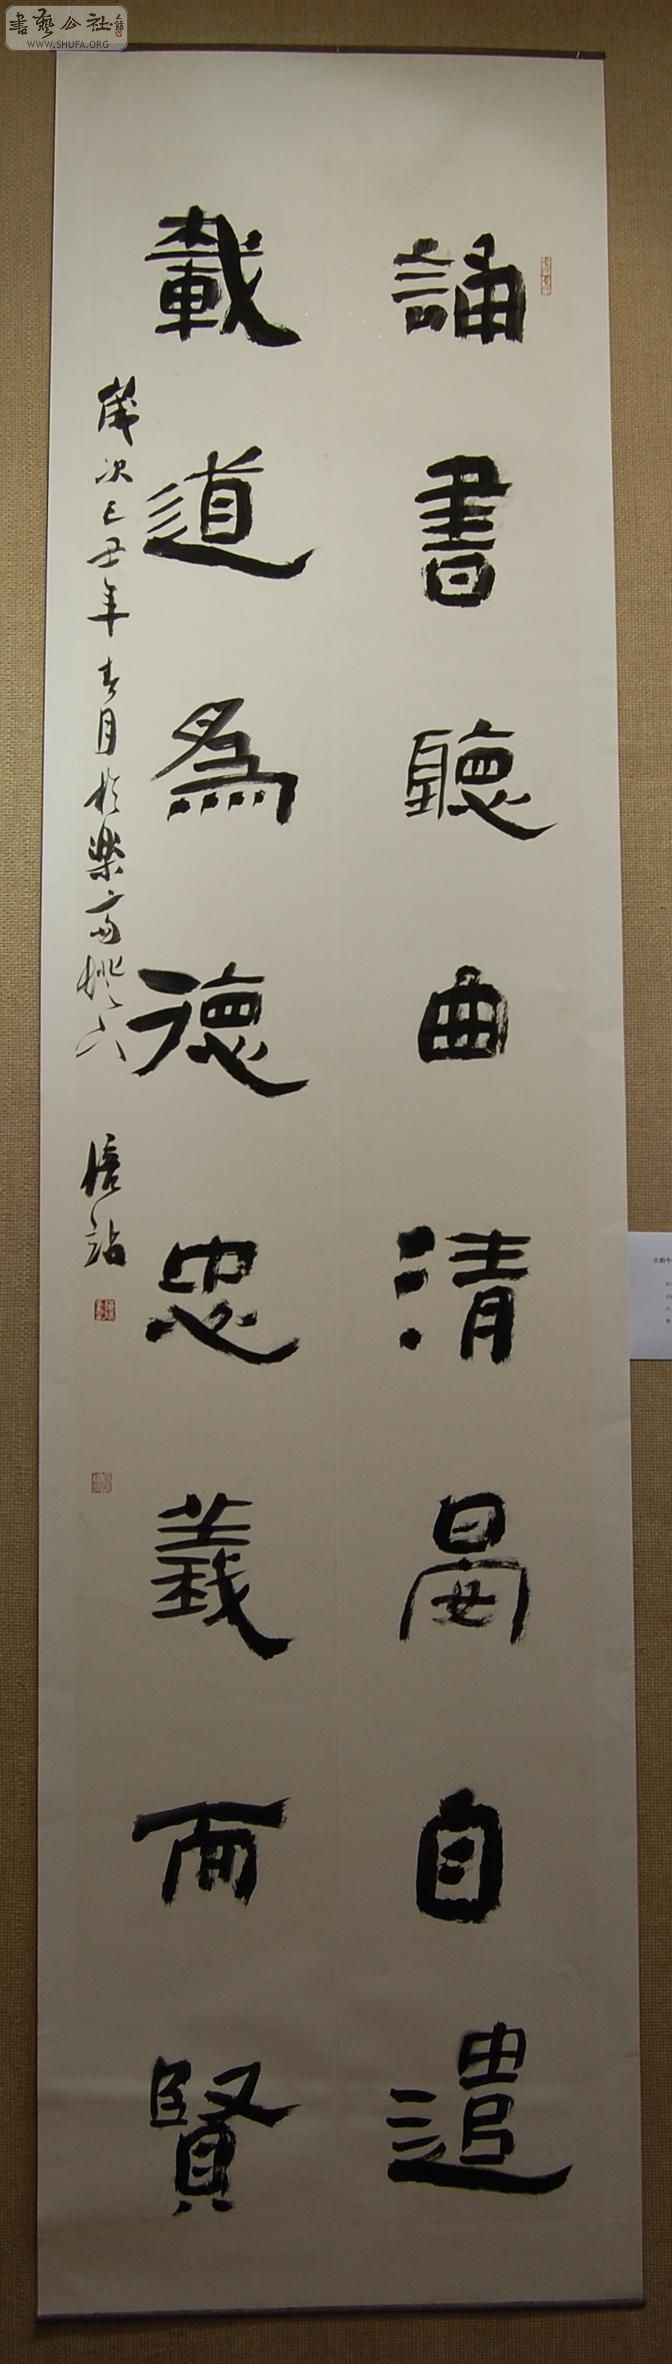 書藝公社
WWW.SHUFA.ORG
誦書聽曲清晏自遣
載道為德忠義而賢
歲次己丑年春月於樂齋燈下